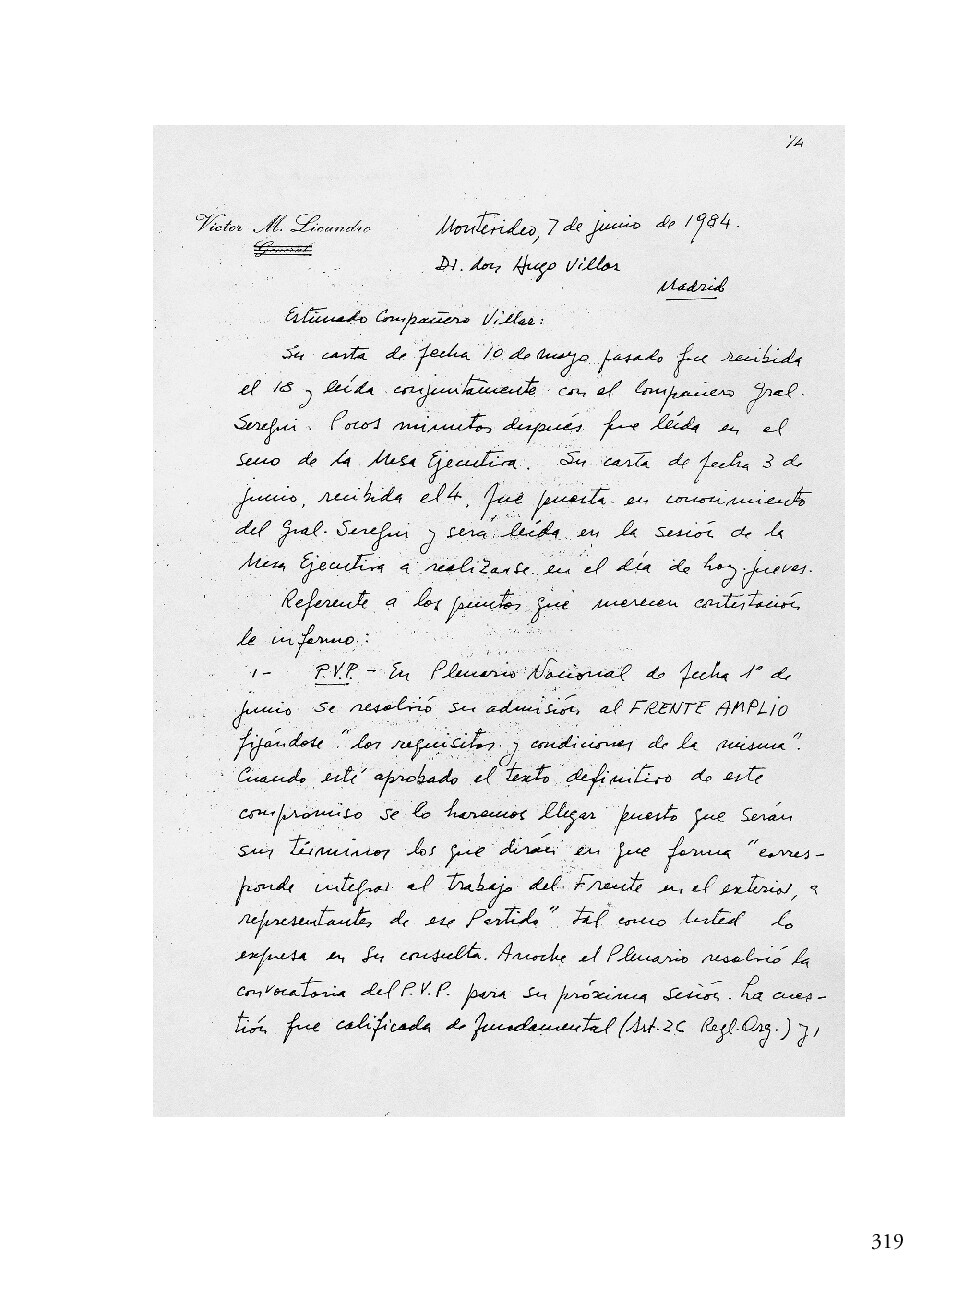 1/4
Víctor M. Licandro
General
Montevideo, 7 de junio de 1984.
Dr. don Hugo Villar
Madrid
Estimado Compañero Villar:
Su carta de fecha 10 de mayo pasado fue recibida
el 18 y leída conjuntamente con el Compañero Gral.
Seregni. Pocos minutos después fue leída en el
seno de la Mesa Ejecutiva. Su carta de fecha 3 de
junio, recibida el 4, fue puesta en conocimiento
del Gral. Seregni y será leída en la sesión de la
Mesa Ejecutiva a realizarse en el día de hoy jueves.
Referente a los puntos que merecen contestación
le informo:
1- P.V.P. - En Plenario Nacional de fecha 1° de
junio se resolvió su admisión al FRENTE AMPLIO
fijándose "los requisitos y condiciones de la misma".
Cuando esté aprobado el texto definitivo de este
compromiso se lo haremos llegar puesto que serán
sus términos los que dirán en que forma "corres-
ponde integrar al trabajo del Frente en el exterior, a
representantes de ese Partido" tal como Usted lo
expresa en su consulta. Anoche el Plenario resolvió la
convocatoria del P.V.P. para su próxima sesión. La cues-
tión fue calificada de fundamental (Art. 26 Regl. Org.) y,
319